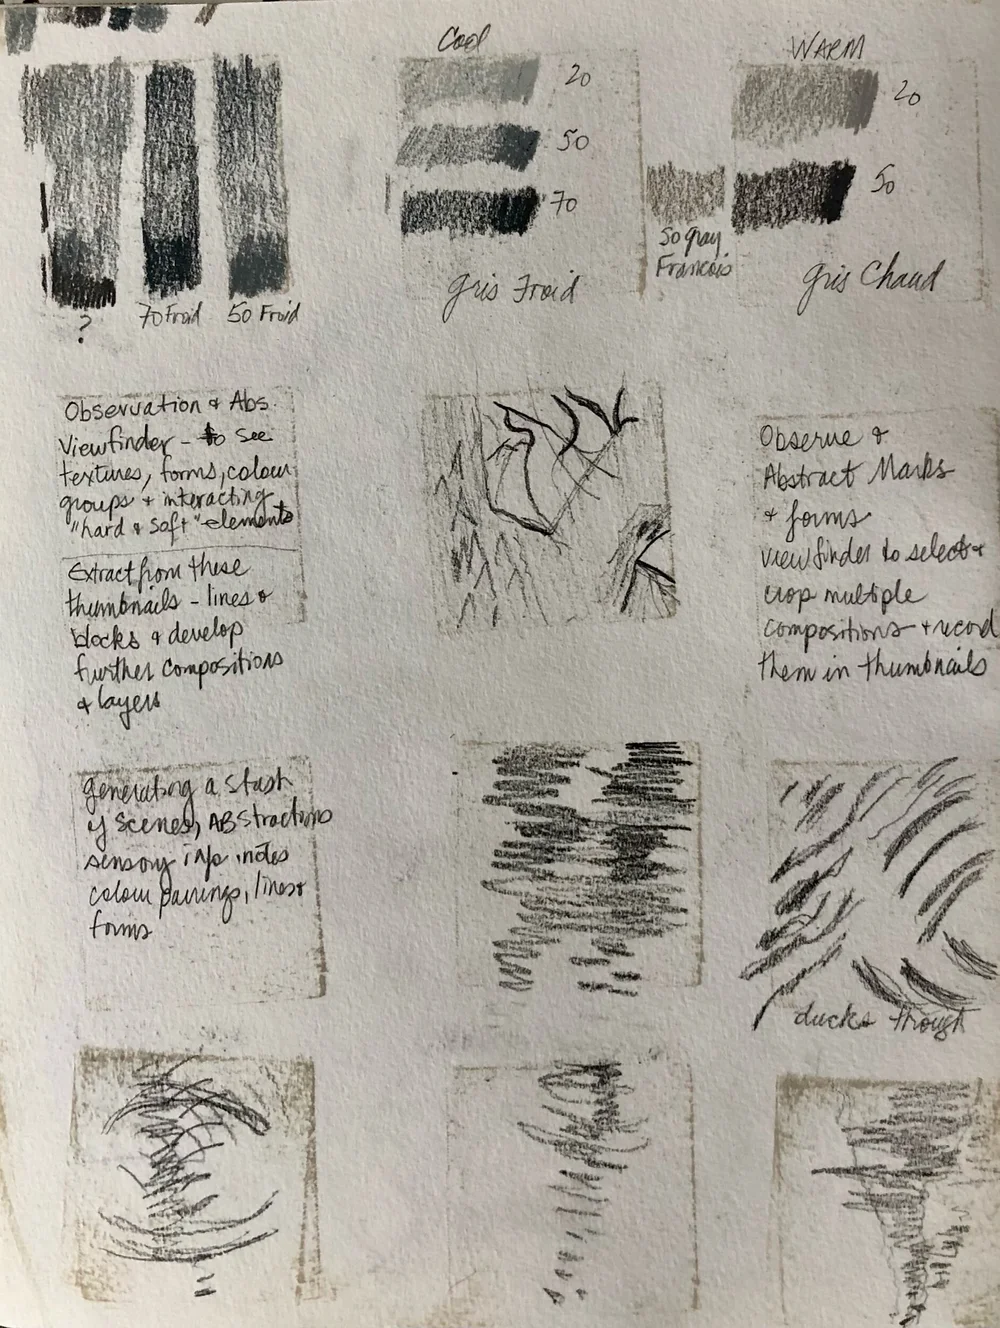 Cool
20
50
70
Gris Froid
WARM
20
50
50 Gray
Francois
Gris Chaud
?
70 Froid
50 Froid
Observation & Abs.
Viewfinder - to see
textures, forms, colour
groups + interacting
"hard & soft" elements
Extract from these
thumbnails - lines &
blocks & develop
further compositions
& layers
Observe &
Abstract Marks
& forms
viewfinder to select +
crop multiple
compositions + record
them in thumbnails
generating a stash
of scenes, ABstractions
sensory info, notes
colour pairings, lines +
forms
ducks through